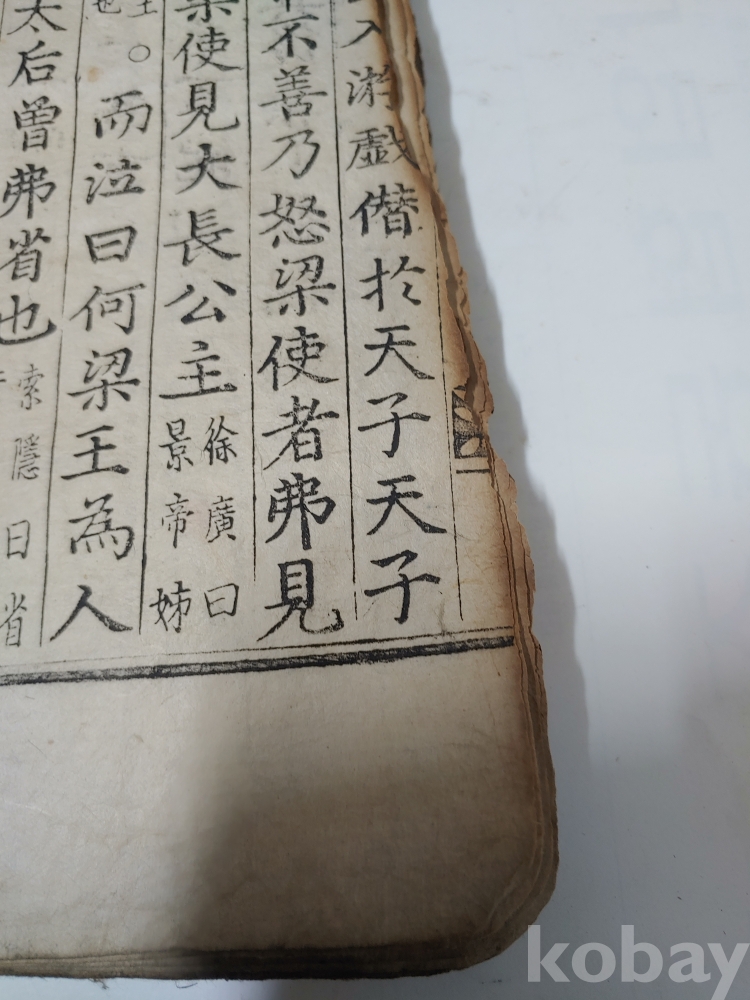 入游戯僣於天子天子
不善乃怒梁使者弗見
梁使見大長公主 徐廣曰
景帝姊
而泣曰何梁王為人
太后曾弗省也 索隱曰省
kobay